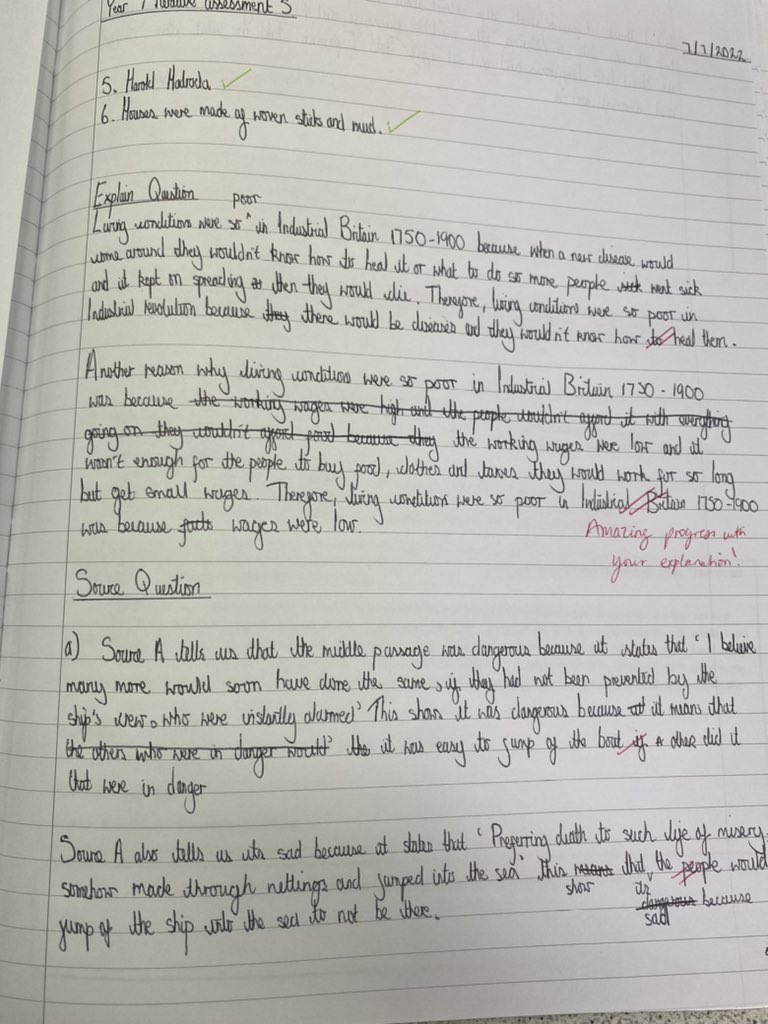 Year 7 Native assessment 3
7/7/2022
5. Harold Hadrada
6. Houses were made of woven sticks and mud.
Explain Question
poor
Living conditions were so ^ in Industrial Britain 1750-1900 because when a new disease would
come around they wouldn't know how to heal it or what to do so more people went sick
and it kept on spreading then they would die. Therefore, living conditions were so poor in
Industrial revolution because they there would be diseases and they wouldn't know how to heal them.
Another reason why living conditions were so poor in Industrial Britain 1750-1900
was because the working wages were high and the people wouldn't afford it with everything
going on they wouldn't afford food because they the working wages were low and it
wasn't enough for the people to buy food, clothes and taxes they would work for so long
but get small wages. Therefore, living conditions were so poor in Industrial Britain 1750-1900
was because wages were low.
Amazing progress with
your explanation!
Source Question
a) Source A tells us that the middle passage was dangerous because it states that 'I believe
many more would soon have done the same, if they had not been prevented by the
ship's crew, who were instantly alarmed' This shows it was dangerous because it means that
the others who were in danger would it was easy to jump of the boat if other did it
that were in danger
Source A also tells us its sad because at states that 'Preferring death to such life of misery,
somehow made through nettings and jumped into the sea' this means that the people would
show
its
dangerous because
sad
jump of the ship into the sea to not be there.